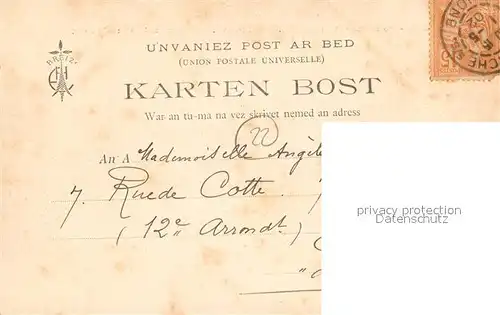 BREIZ
U'NVANIEZ POST AR BED
(UNION POSTALE UNIVERSELLE)
KARTEN BOST
War an tu-ma na vez skrivet nemed an adress
22
An A Mademoiselle Angèle
7. Rue de Cotte.
(12e Arrondt.)
privacy protection
displayed on original